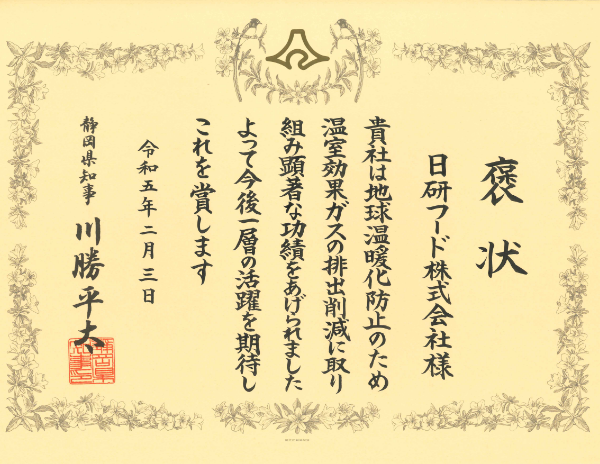 褒状
日研フード株式会社様
貴社は地球温暖化防止のため
温室効果ガスの排出削減に取り
組み顕著な功績をあげられました
よって今後一層の活躍を期待し
これを賞します
令和五年二月三日
静岡県知事 川勝平太